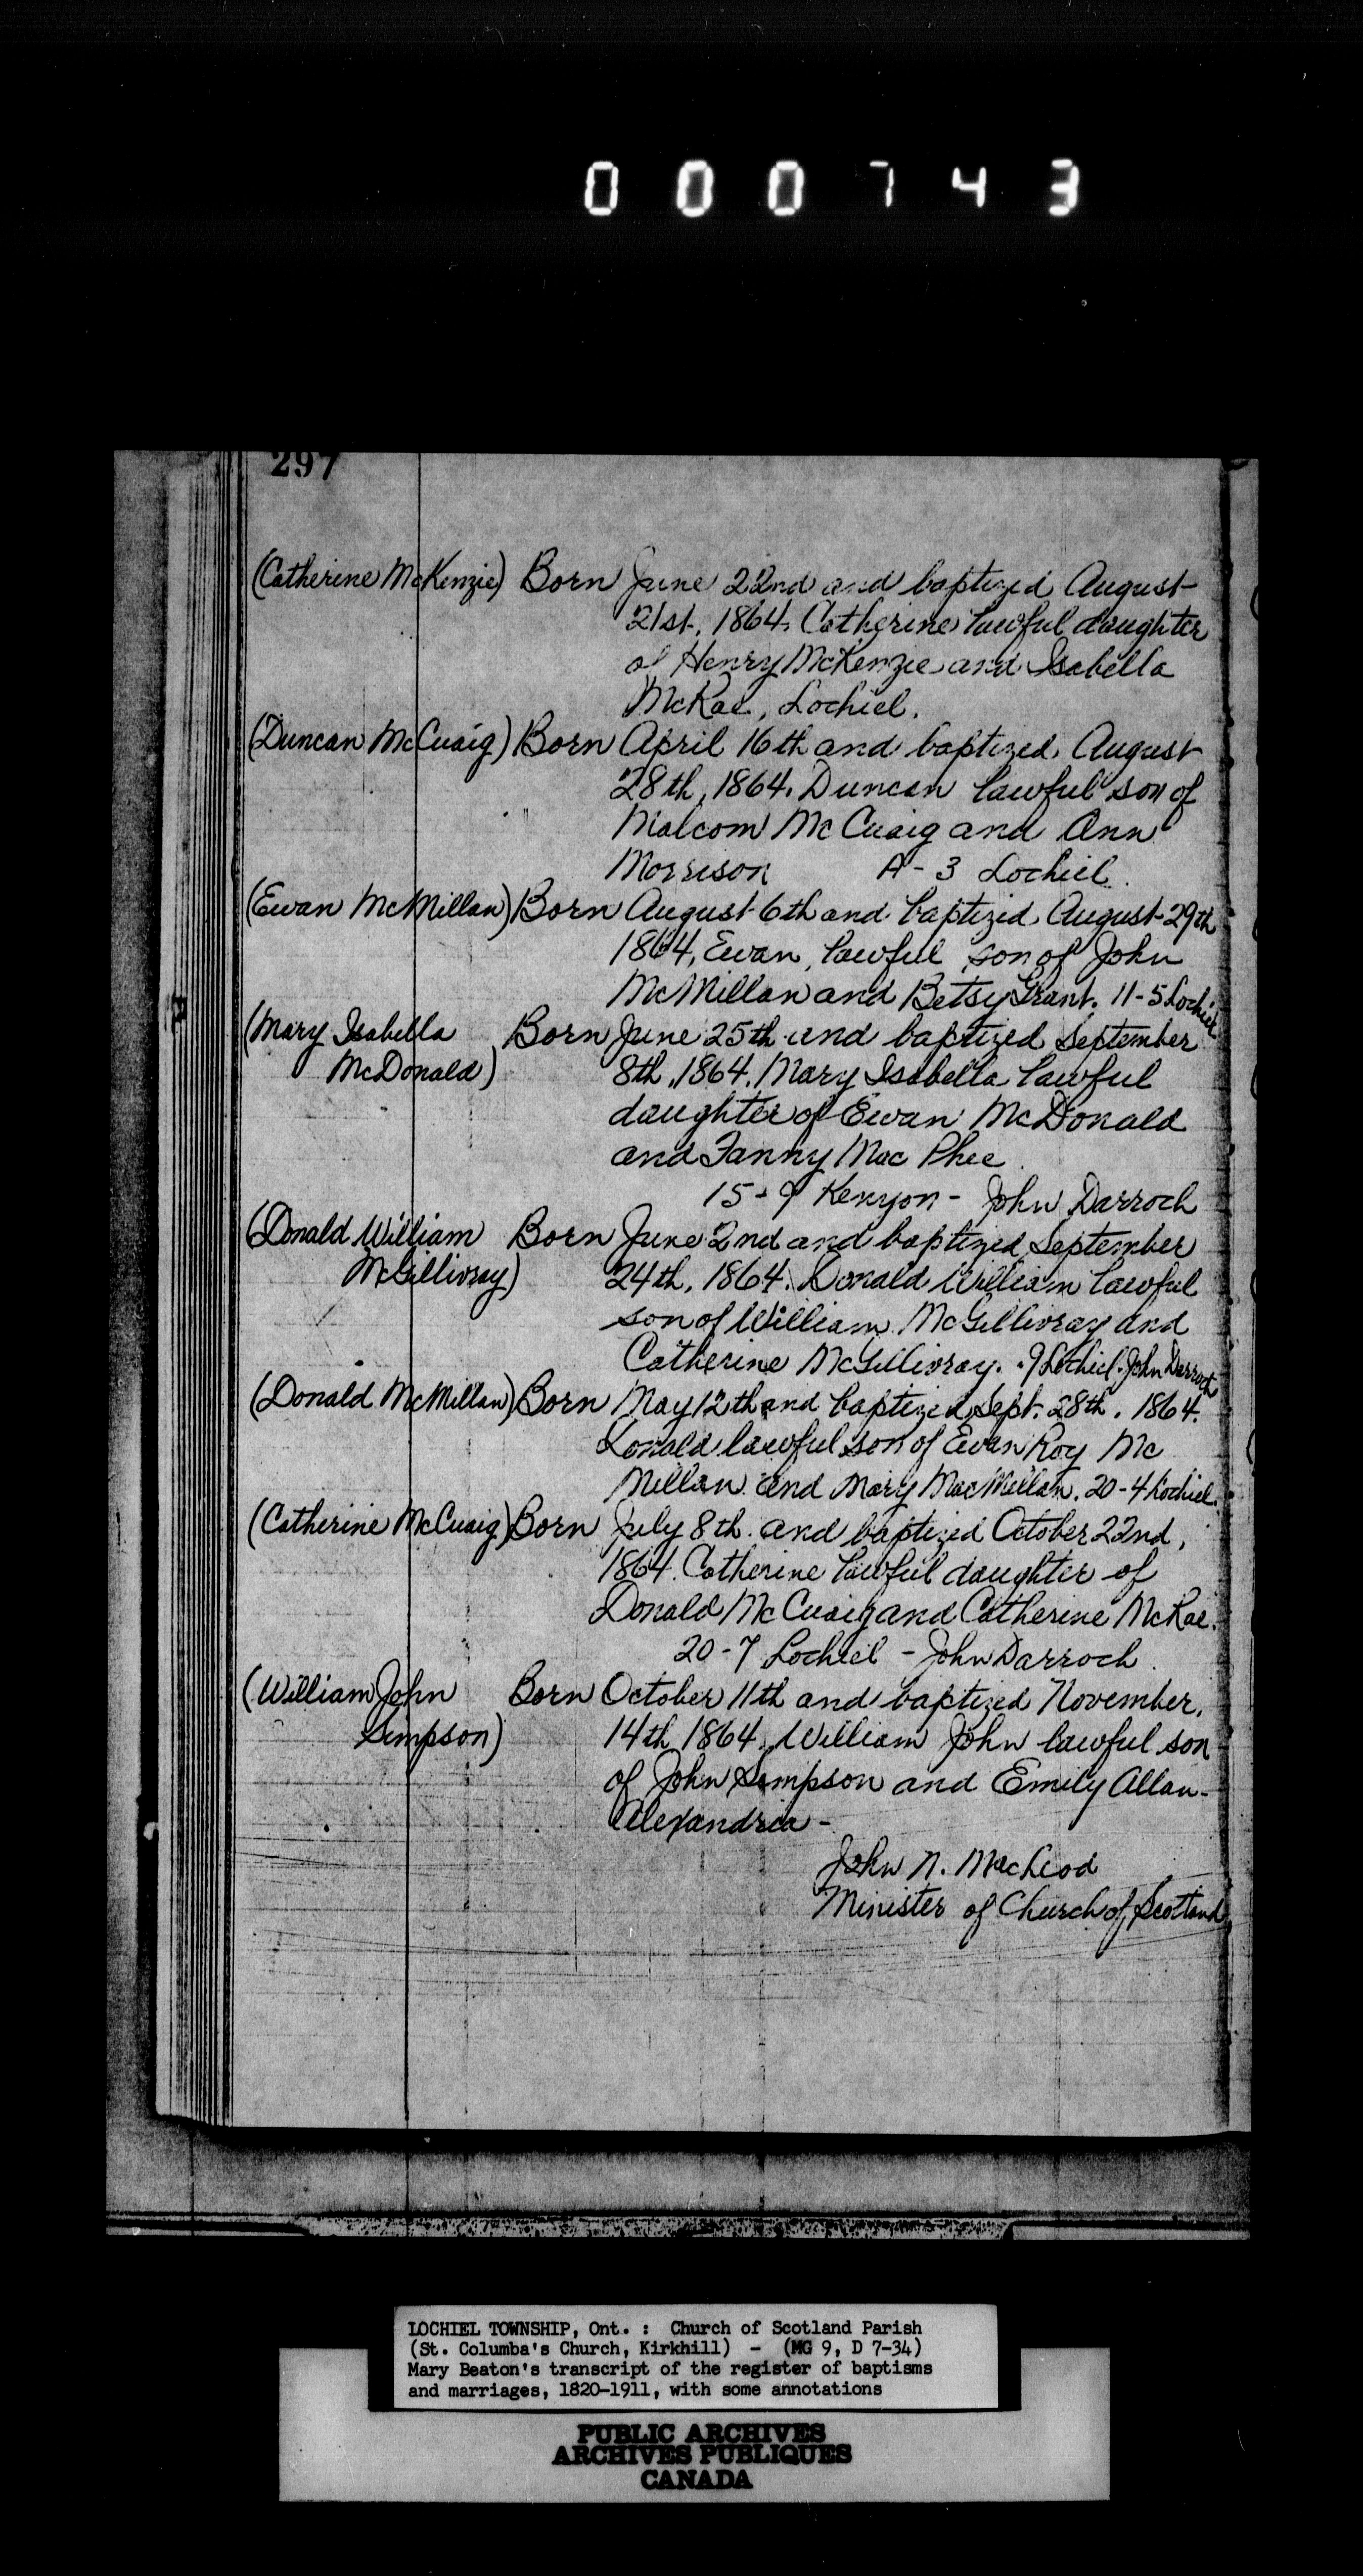 000743
297
(Catherine McKenzie) Born June 22nd and baptized August
21st, 1864. Catherine lawful daughter
of Henry McKenzie and Isabella
McRae, Lochiel.
(Duncan McCuaig) Born April 16th and baptized August
28th, 1864. Duncan lawful son of
Malcom McCuaig and Ann
Morrison A-3 Lochiel.
(Ewan McMillan) Born August 6th and baptized August 29th
1864, Ewan, lawful son of John
McMillan and Betsy Grant. 11-5 Lochiel
(Mary Isabella Born June 25th and baptized September
McDonald) 8th, 1864. Mary Isabella lawful
daughter of Ewan McDonald
and Fanny Mac Phee
15-9 Kenyon - John Darroch
(Donald William Born June 2nd and baptized September
McGillivray) 24th, 1864. Donald William lawful
son of William McGillivray and
Catherine McGillivray. -9 Lochiel. John Darroch
(Donald McMillan) Born May 12th and baptized Sept. 28th, 1864.
Donald lawful son of Ewan Roy Mc
Millan and Mary MacMillan. 20-4 Lochiel.
(Catherine McCuaig) Born July 8th and baptized October 22nd,
1864. Catherine lawful daughter of
Donald McCuaig and Catherine McRae.
20-7 Lochiel - John Darroch.
(William John Born October 11th and baptized November,
Simpson) 14th, 1864. William John lawful son
of John Simpson and Emily Allan -
Alexandria -
John N. MacLeod
Minister of Church of Scotland
LOCHIEL TOWNSHIP, Ont. : Church of Scotland Parish
(St. Columba's Church, Kirkhill) - (MG 9, D 7-34)
Mary Beaton's transcript of the register of baptisms
and marriages, 1820-1911, with some annotations
PUBLIC ARCHIVES
ARCHIVES PUBLIQUES
CANADA